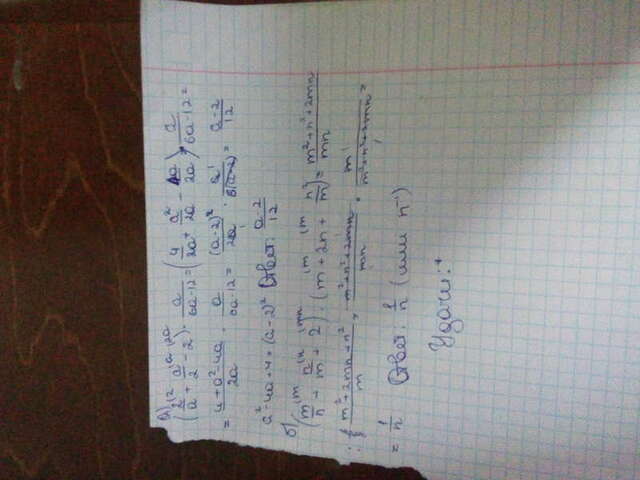 а)
(2/a + a/2 - 2) · a/(6a-12) = (4/2a + a²/2a - 4a/2a) · a/(6a-12) =
= (4+a²-4a)/2a · a/(6a-12) = (a-2)²/2a · a/6(a-2) = (a-2)/12
a²-4a+4=(a-2)² Ответ: (a-2)/12
б)
(m/n + n/m + 2) : (m + 2n + n²/m) = (m²+n²+2mn)/mn
: (m²+2mn+n²)/m = (m²+n²+2mn)/mn · m/(m²+n²+2mn) =
= 1/n Ответ: 1/n (или n⁻¹)
Удачи:*